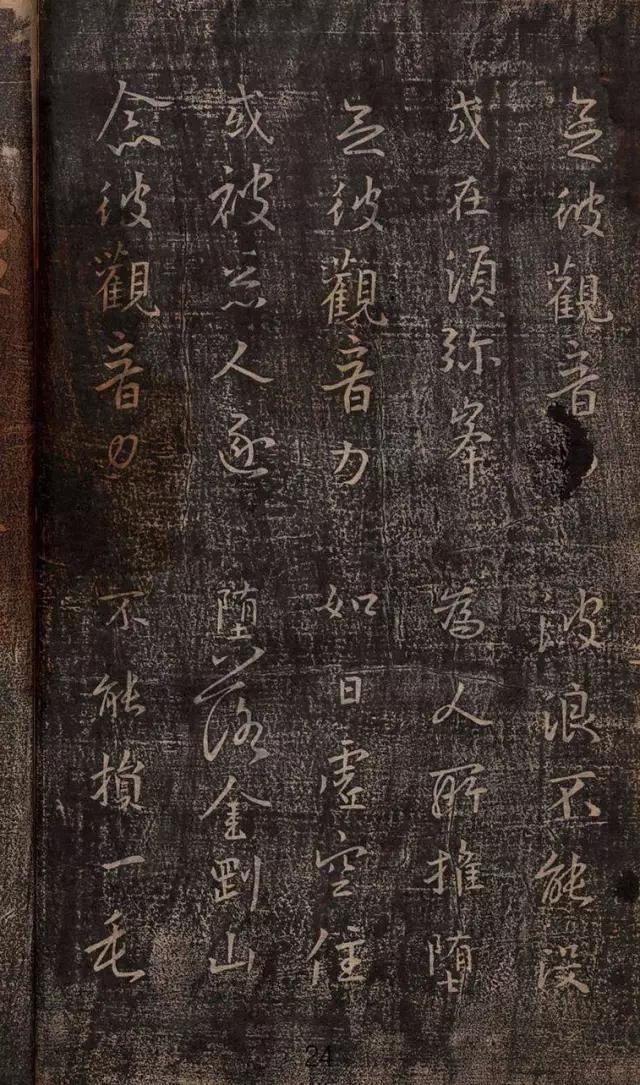 念彼觀音 波浪不能没
或在須弥峯 為人所推墮
念彼觀音力 如日虚空住
或被惡人逐 堕落金剛山
念彼觀音力 不能損一毛
24